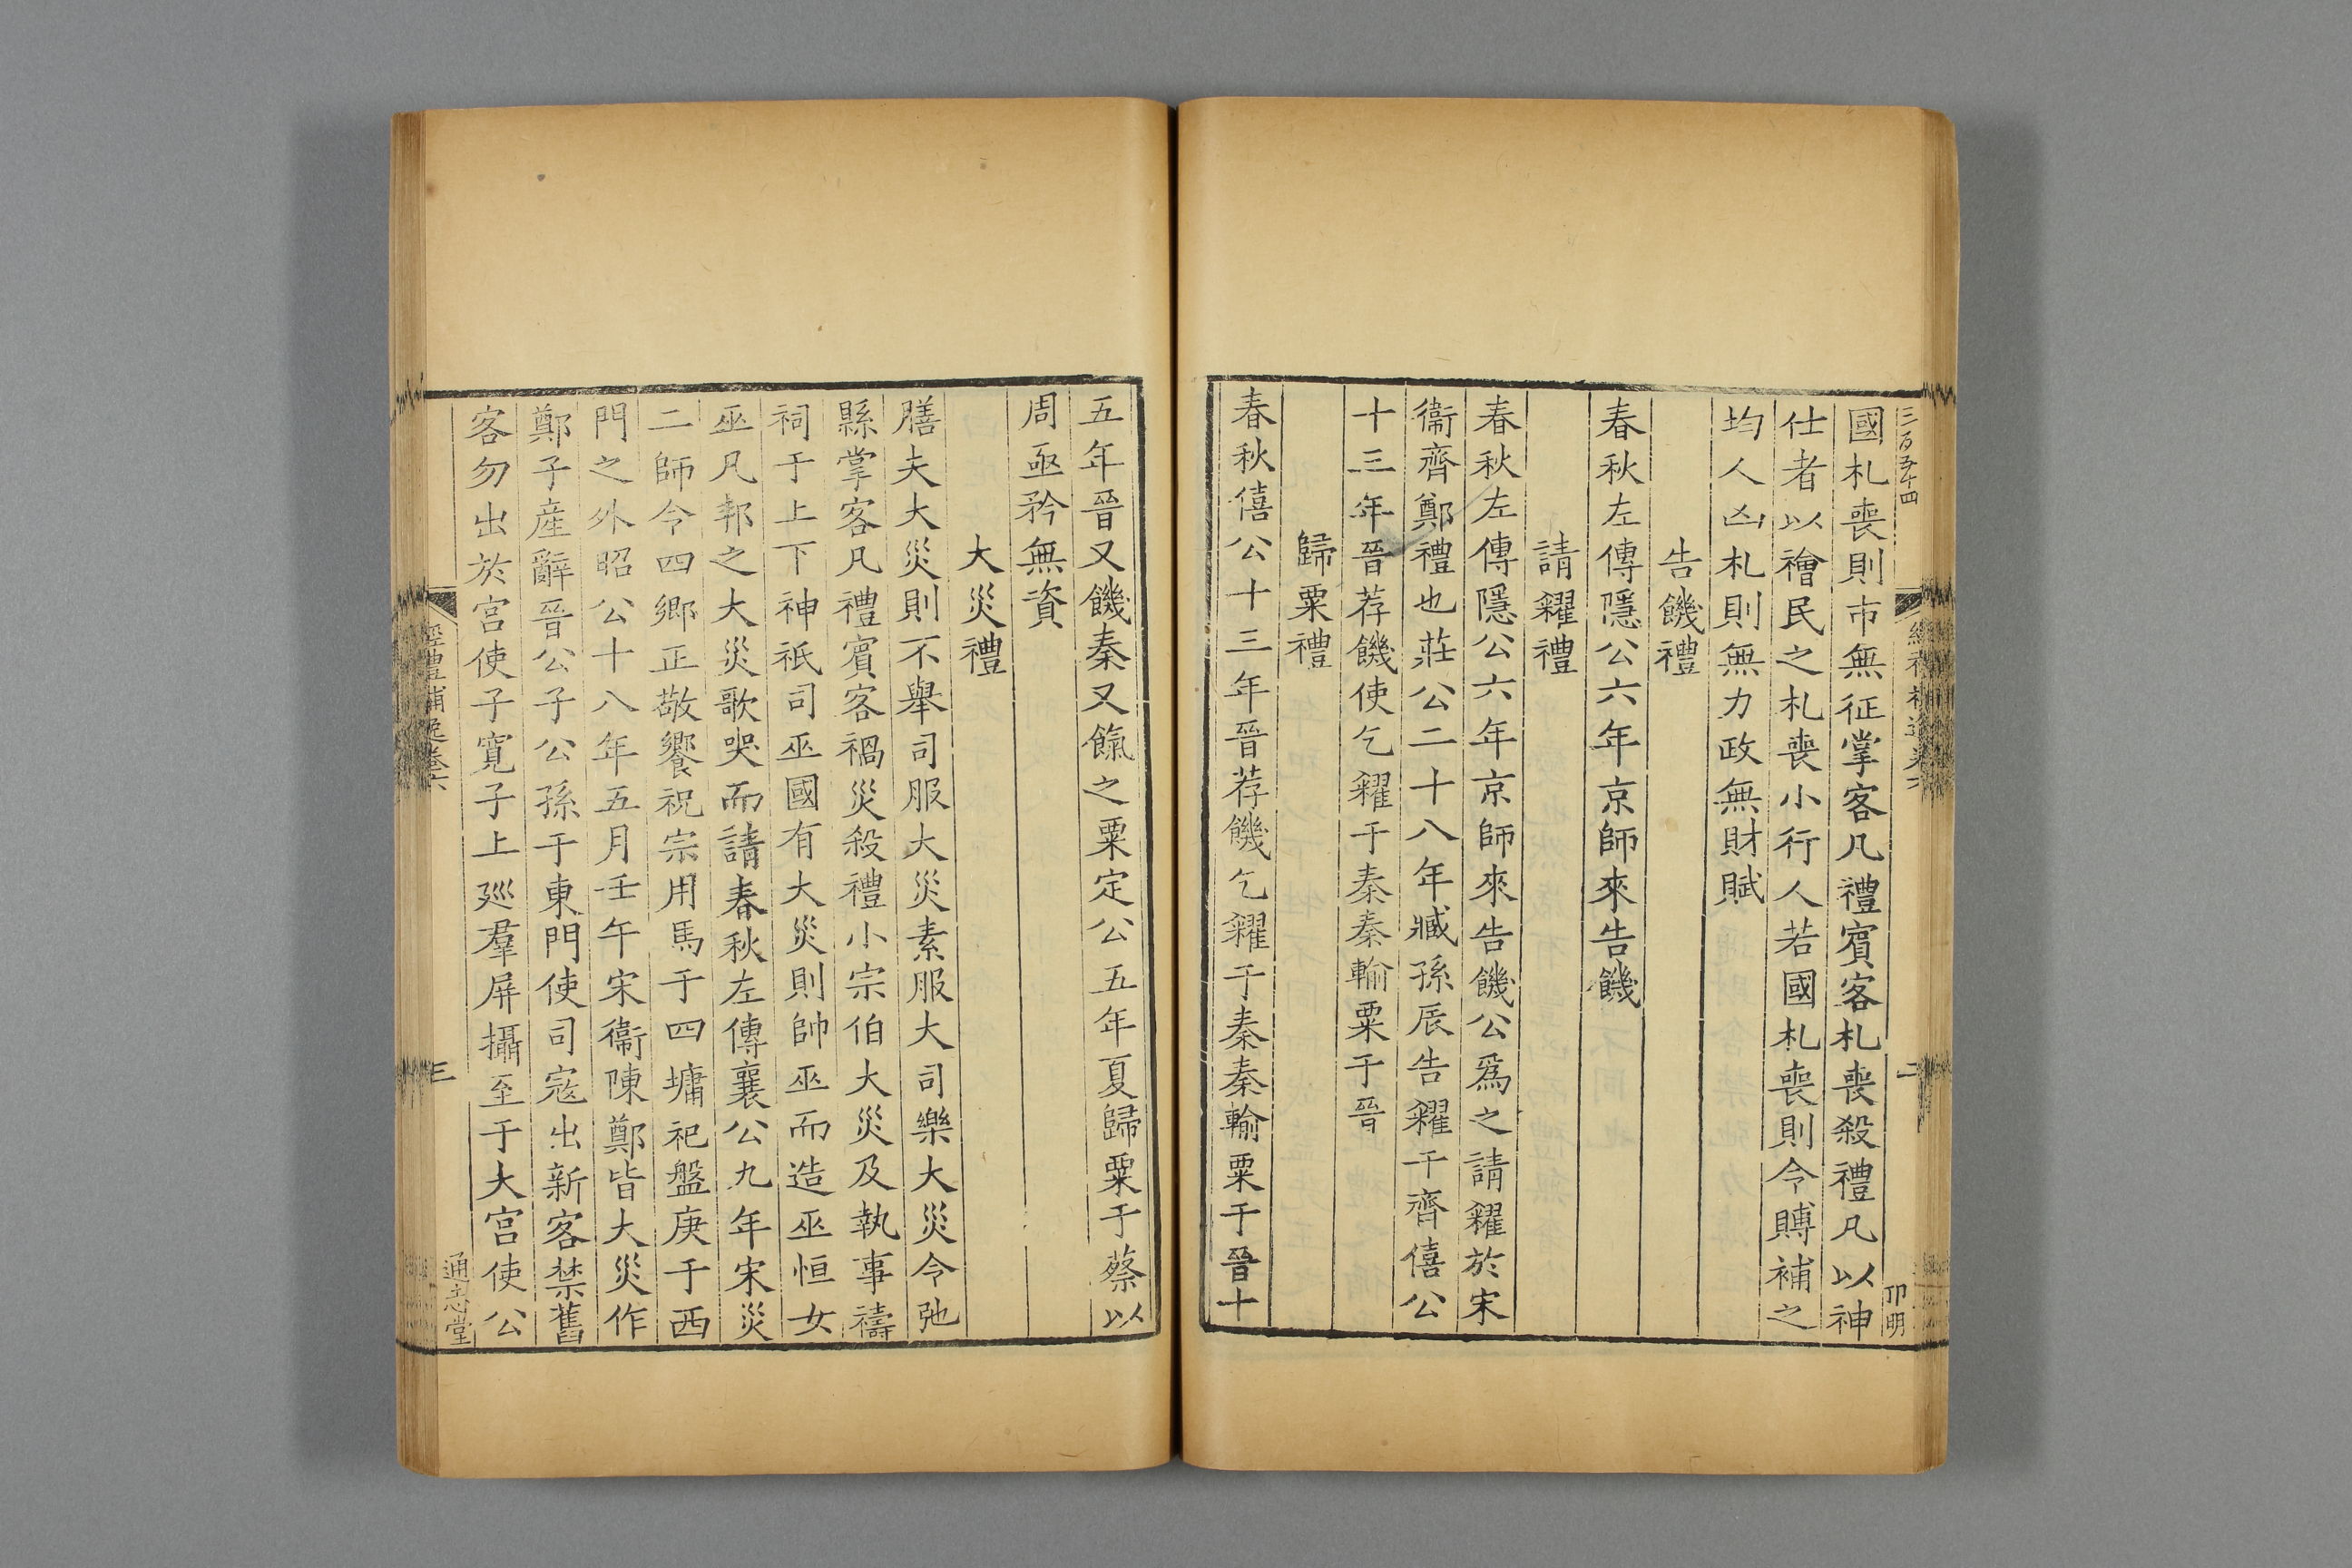 三百五十四
二
卬明
國札喪則市無征掌客凡禮賓客札喪殺禮凡以神
仕者以禬民之札喪小行人若國札喪則令賻補之
均人凶札則無力政無財賦
告饑禮
春秋左傳隱公六年京師來告饑
請糴禮
春秋左傳隱公六年京師來告饑公爲之請糴於宋
衞齊鄭禮也莊公二十八年臧孫辰告糴于齊僖公
十三年晉荐饑使乞糴于秦秦輸粟于晉
歸粟禮
春秋僖公十三年晉荐饑乞糴于秦秦輸粟于晉十
五年晉又饑秦又餼之粟定公五年夏歸粟于蔡以
周亟矜無資
大災禮
膳夫大災則不舉司服大災素服大司樂大災令弛
縣掌客凡禮賓客禍災殺禮小宗伯大災及執事禱
祠于上下神祇司巫國有大災則帥巫而造巫恒女
巫凡邦之大災歌哭而請春秋左傳襄公九年宋災
二師令四鄉正敬饗祝宗用馬于四墉祀盤庚于西
門之外昭公十八年五月壬午宋衞陳鄭皆大災作
鄭子產辭晉公子公孫于東門使司寇出新客禁舊
客勿出於宮使子寬子上廵羣屏攝至于大宮使公
經禮補逸卷六
三
通志堂